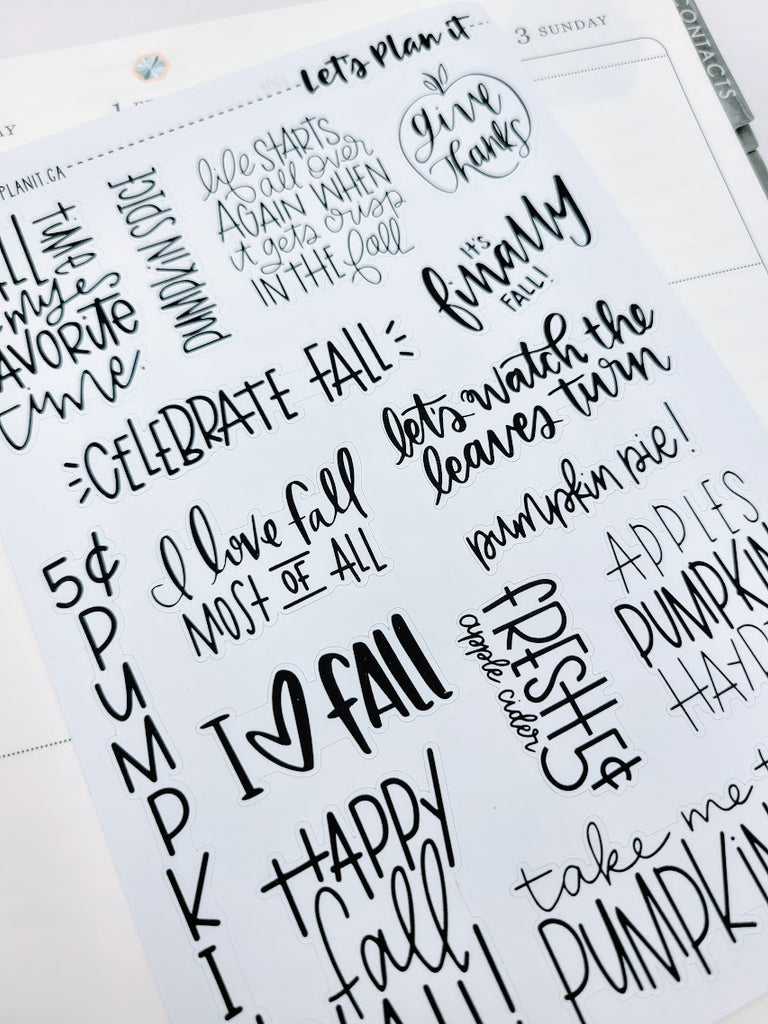 Let's Plan it
3 SUNDAY
CONTACTS
PLANIT.CA
give
Thanks
life STARTS
all over
AGAIN WHEN
it gets crisp
IN THE fall
PUMPKIN SPICE
FAVORITE
time.
IT'S
finally
FALL!
CELEBRATE FALL
let's watch the
leaves turn
pumpkin pie!
I love fall
MOST OF ALL
5¢
PUMPKI
APPLES
PUMPKIN
HAYR
I ♥ FALL
FRESH 5¢
apple cider
HAPPY
fall
take me t
PUMPKIN